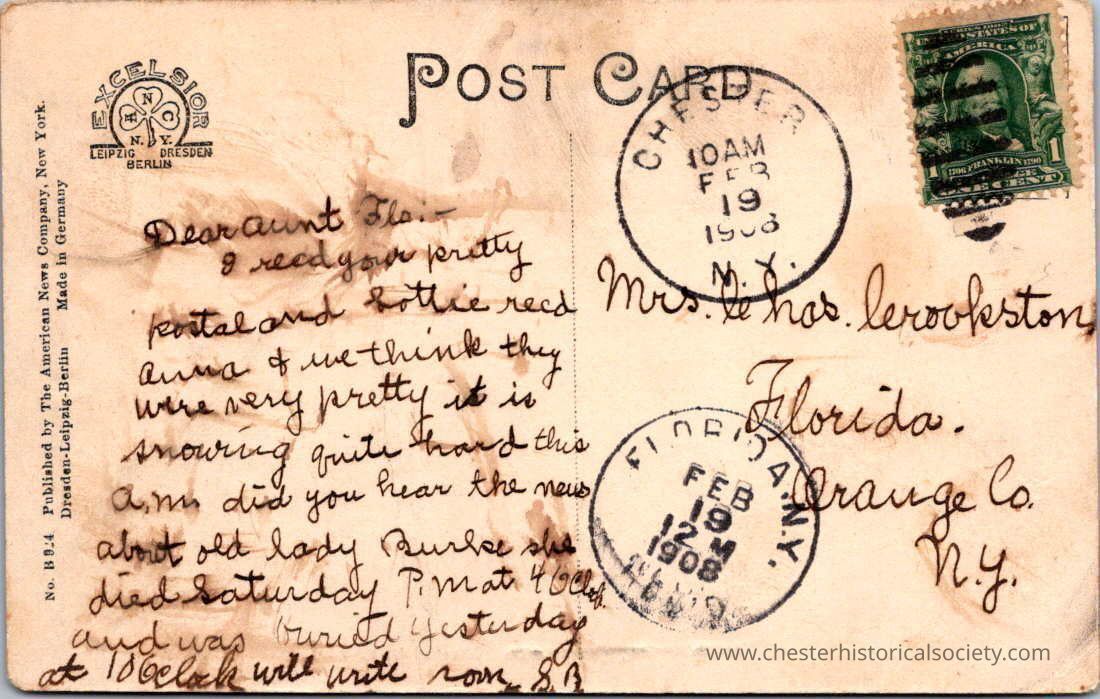 POST CARD
EXCELSIOR
A N C
N. Y.
LEIPZIG DRESDEN
BERLIN
No. B 924 Published by The American News Company, New York.
Dresden-Leipzig-Berlin Made in Germany
CHESTER
10 AM
FEB
19
1908
N. Y.
UNITED STATES OF
AMERICA
1706 FRANKLIN 1790
1 1
ONE CENT
Dear Aunt Flo:-
I recd your pretty
postal and Lottie recd
Anna & we think they
were very pretty it is
snowing quite hard this
A.m. did you hear the news
about old lady Burke she
died Saturday P.M at 4 OClk.
and was buried yesterday
at 10 OClock will write soon S.B
Mrs. Chas. Crookston,
Florida.
Orange Co.
N.Y.
FLORIDA, N.Y.
FEB
19
12 M
1908
www.chesterhistoricalsociety.com